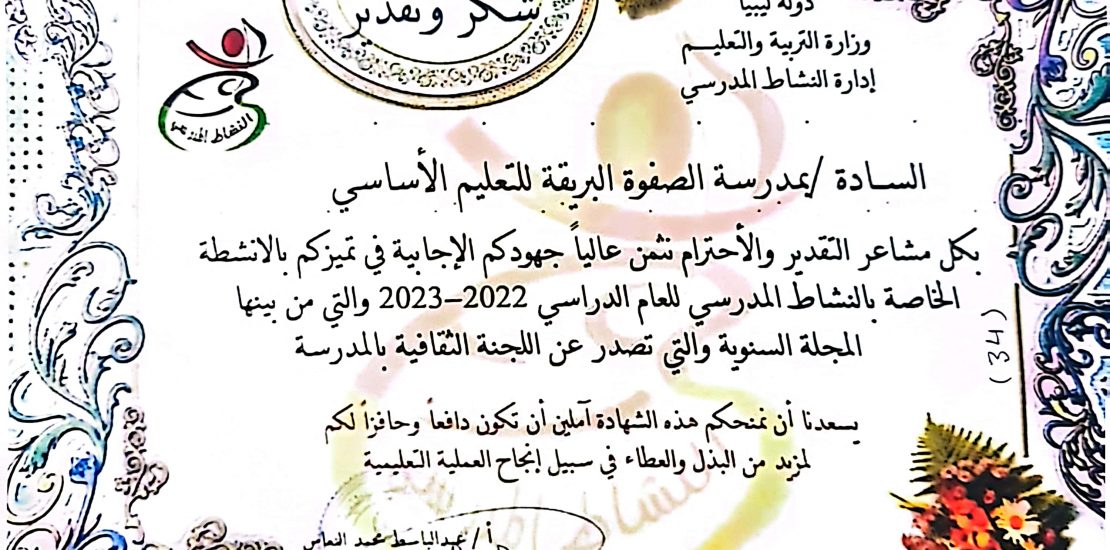 شكر وتقدير
دولة ليبيا
وزارة التربية والتعليم
إدارة النشاط المدرسي
النشاط المدرسي
السادة / بمدرسة الصفوة البريقة للتعليم الأساسي
بكل مشاعر التقدير والأحترام نثمن عالياً جهودكم الإجابية في تميزكم بالانشطة
الخاصة بالنشاط المدرسي للعام الدراسي 2022-2023 والتي من بينها
المجلة السنوية والتي تصدر عن اللجنة الثقافية بالمدرسة
(34)
يسعدنا أن نمنحكم هذه الشهادة آملين أن تكون دافعاً وحافزاً لكم
لمزيد من البذل والعطاء في سبيل إنجاح العملية التعليمية
أ / عبدالباسط محمد النعاس